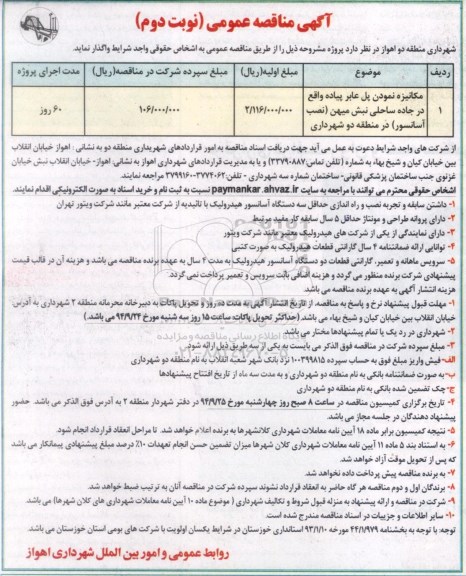 آگهی مناقصه عمومی (نوبت دوم)
شهرداری منطقه دو اهواز در نظر دارد پروژه مشروحه ذیل را از طریق مناقصه عمومی به اشخاص حقوقی واجد شرایط واگذار نماید.
ردیف موضوع مبلغ اولیه(ریال) مبلغ سپرده شرکت در مناقصه(ریال) مدت اجرای پروژه
۱ مکانیزه نمودن پل عابر پیاده واقع در جاده ساحلی نبش میهن (نصب آسانسور) در منطقه دو شهرداری ۲/۱۱۶/۰۰۰/۰۰۰ ۱۰۶/۰۰۰/۰۰۰ ۶۰ روز
از شرکت های واجد شرایط دعوت به عمل می آید جهت دریافت اسناد مناقصه به امور قراردادهای شهرداری منطقه دو به نشانی : اهواز خیابان انقلاب
بین خیابان کیان و شیخ بهاء به شماره (تلفن تماس ۳۳۷۹۰۸۸۷) و یا به مدیریت قراردادهای شهرداری اهواز به نشانی: اهواز- خیابان انقلاب نبش خیابان
غزنوی جنب ساختمان پزشکی قانونی- ساختمان شماره سه شهرداری - تلفن: ۳۷۷۴۰۶۲-۳۷۹۹۱۶۰۰ مراجعه نمایند.
اشخاص حقوقی محترم می توانند با مراجعه به سایت paymankar.ahvaz.ir نسبت به ثبت نام و خرید اسناد به صورت الکترونیکی اقدام نمایند.
۱- داشتن سابقه و تجربه نصب و راه اندازی حداقل سه دستگاه آسانسور هیدرولیک با تائیدیه از شرکت معتبر مانند شرکت ویتور تهران
۲- دارای پروانه طراحی و مونتاژ حداقل ۵ سال سابقه کار مفید مرتبط
۳- دارای نمایندگی از یکی از شرکت های هیدرولیک معتبر مانند شرکت ویتور
۴- توانایی ارائه ضمانتنامه ۴ سال گارانتی قطعات هیدرولیک به صورت کتبی
۵- سرویس ماهانه و تعمیر، گارانتی قطعات دو دستگاه آسانسور هیدرولیک به مدت ۴ سال به عهده برنده مناقصه می باشد و هزینه آن در قالب قیمت
پیشنهادی شرکت برنده منظور می گردد و هزینه اضافی بابت سرویس و تعمیر پرداخت نمی گردد.
هزینه انتشار آگهی به عهده برنده مناقصه می باشد.
۱- مهلت قبول پیشنهاد نرخ و پاسخ به مناقصه، از تاریخ انتشار آگهی به مدت ده روز و تحویل پاکات به دبیرخانه محرمانه منطقه ۲ شهرداری به آدرس
خیابان انقلاب بین خیابان کیان و شیخ بهاء می باشد. (حداکثر تحویل پاکات، ساعت ۱۵ روز سه شنبه مورخ ۹۴/۹/۲۴ می باشد.)
۲- شهرداری در رد یک یا تمام پیشنهادها مختار می باشد.
۳- مبلغ سپرده شرکت در مناقصه فوق الذکر می بایست به یکی از سه طریق ذیل ارائه شود.
الف- فیش واریز مبلغ فوق به حساب سپرده ۱۰۰۳۹۹۸۱۵ نزد بانک شهر شعبه انقلاب به نام منطقه دو شهرداری
ب- به صورت ضمانتنامه بانکی به نام منطقه دو شهرداری و به مدت سه ماه از تاریخ افتتاح پیشنهادها
ج- چک تضمین شده بانکی به نام منطقه دو شهرداری
۴- تاریخ برگزاری کمیسیون مناقصه در ساعت ۸ صبح روز چهارشنبه مورخ ۹۴/۹/۲۵ در دفتر شهردار منطقه ۲ به آدرس فوق الذکر می باشد. حضور
پیشنهاد دهندگان در جلسه مجاز می باشد.
۵- نتیجه کمیسیون برابر ماده ۱۸ آیین نامه معاملات شهرداری کلانشهرها به برنده اعلام خواهد شد. تا مراحل انعقاد قرارداد انجام شود.
۶- به استناد بند ۵ ماده ۱۱ آیین نامه معاملات شهرداری کلان شهرها میزان تضمین حسن انجام تعهدات ۱۰٪ درصد مبلغ پیشنهادی پیمانکار می باشد
که پس از تحویل موقت آزاد خواهد شد.
۷- به برنده مناقصه پیش پرداخت داده نخواهد شد.
۸- برندگان اول و دوم مناقصه هر گاه حاضر به انعقاد قرارداد نشوند سپرده شرکت در مناقصه آنان به ترتیب ضبط خواهد شد.
۹- شرکت در مناقصه و ارائه پیشنهاد به منزله قبول شروط و تکالیف شهرداری ( موضوع ماده ۱۰ آیین نامه معاملات شهرداری های کلان شهرها) می باشد.
۱۰- سایر اطلاعات و جزییات در اسناد مناقصه مندرج شده است.
توجه: با توجه به بخشنامه ۴۴/۱/۹۷۹ مورخه ۹۳/۱/۱۰ استانداری خوزستان در شرایط یکسان اولویت با شرکت های بومی استان خوزستان می باشد.
روابط عمومی و امور بین الملل شهرداری اهواز